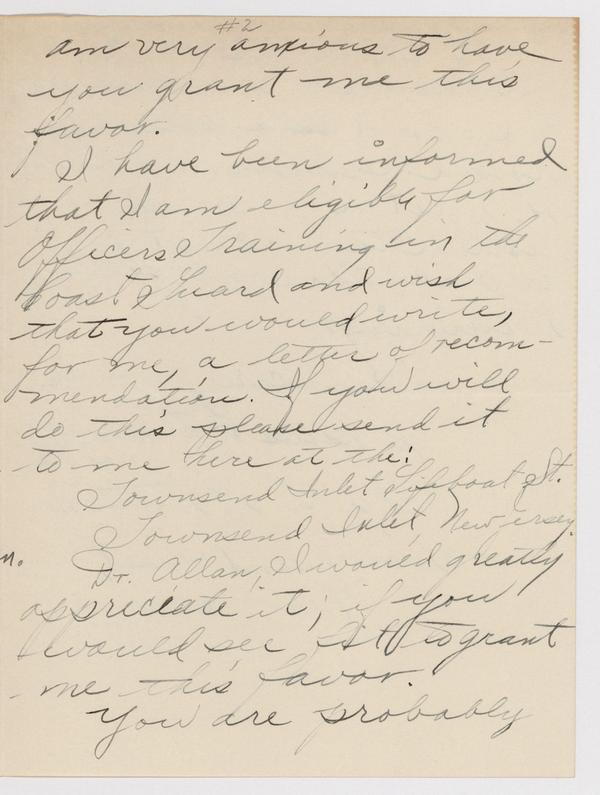 #2
am very anxious to have
you grant me this
favor.
I have been informed
that I am eligible for
Officers Training in the
Coast Guard and wish
that you would write,
for me, a letter of recom-
mendation. If you will
do this please send it
to me here at the:
Townsend Inlet Lifeboat St.
Townsend Inlet, New Jersey.
n.
Dr. Allan, I would greatly
appreciate it; if you
would see fit to grant
me this favor.
You are probably